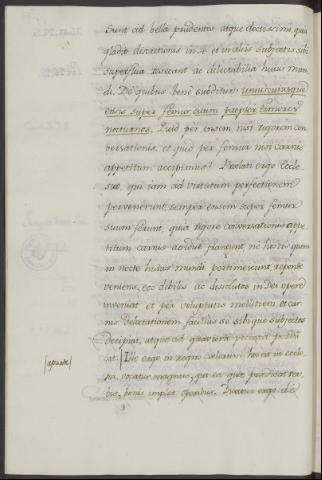 sunt ad bella prudentes atque doctissimi, quia
gladio discretionis in se et in aliis subjectis sibi
superflua resecant ac delectabilia huius mun
di. De quibus bene subditur: uniuscuiusque
ensis super femur suum propter timores
nocturnos. Quid per ensem nisi rigorem con
versationis, et quid per femur nisi carnis
appetitum accipimus? Prælati ergo Eccle
siæ, qui iam ad virtutum perfectionem
pervenerunt, semper ensem super femur
suum ferunt, quia rigore conversationis appe
titum carnis acrius frangunt, ne hostis quem
in nocte huius mundi pertimescunt repente
veniens, eos debiles ac dissolutos in Dei opere
inveniat et per voluptatis mollitiem et car
nis delectationem facilius se sibique subjectos
decipiat, atque ad graviora peccata perdu
cat. Ille ergo in regno cœlorum hoc est in eccle
sia, vocatur magnus, qui ea quæ prædicat ver
bis, bonis implet operibus. Dicatur ergo ille